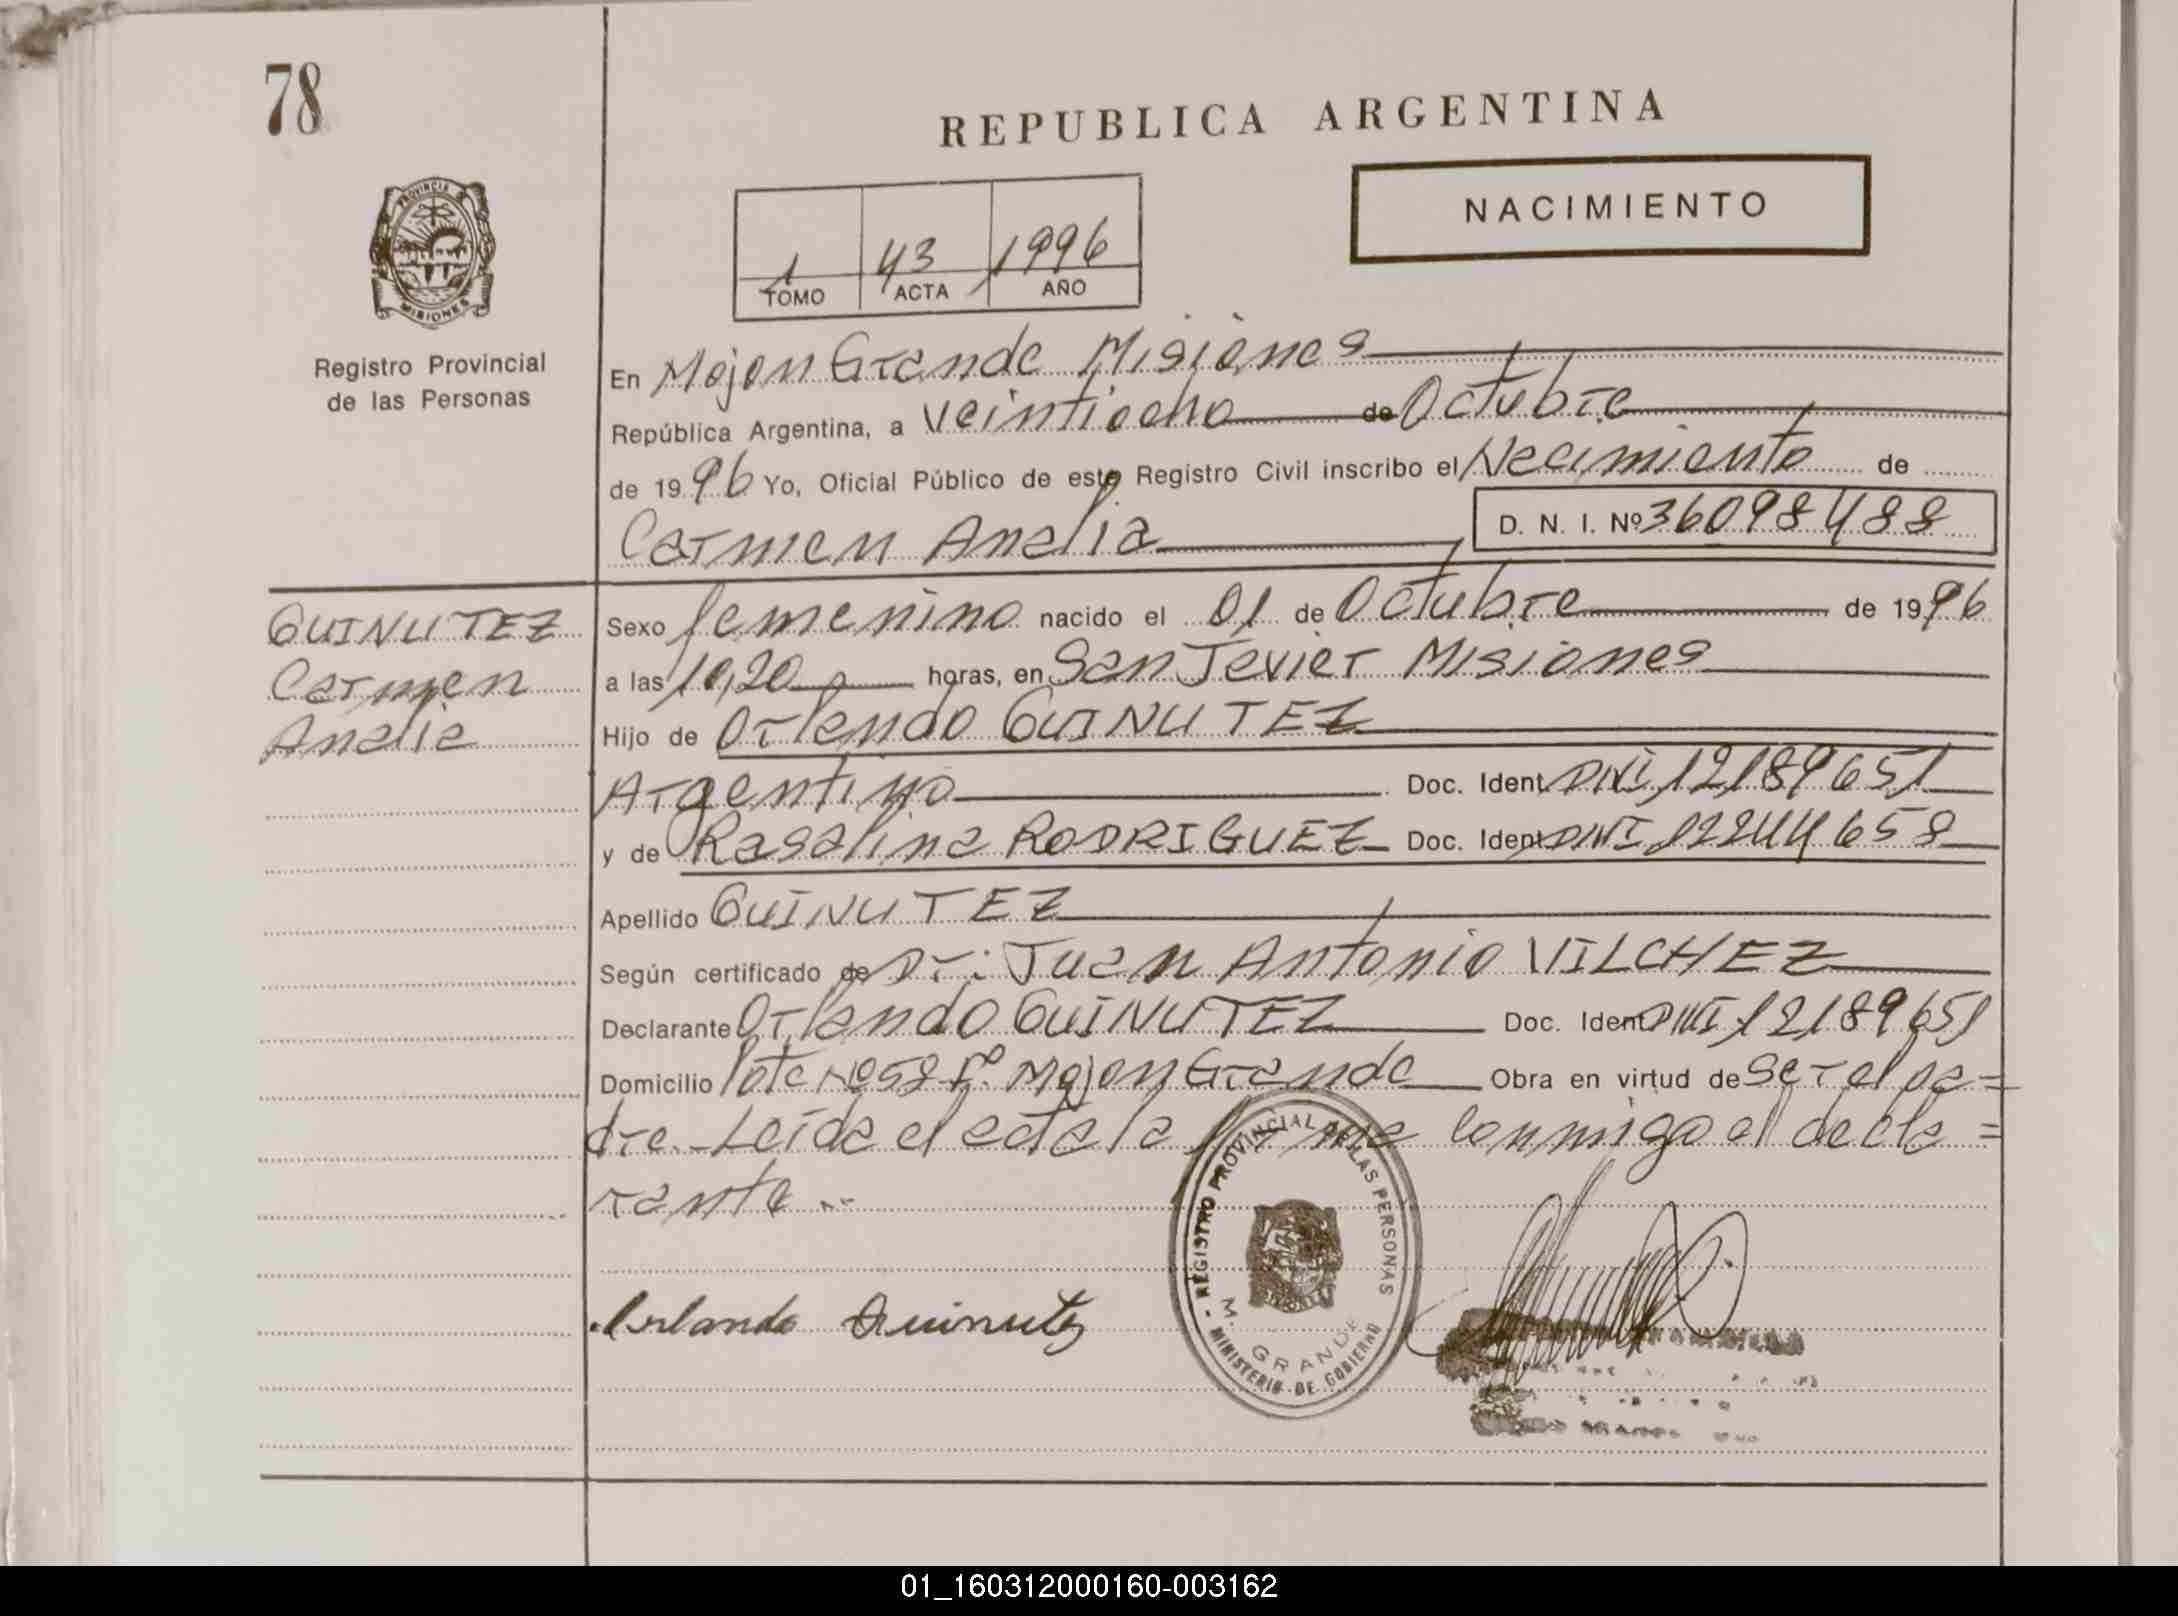 78
REPUBLICA ARGENTINA
NACIMIENTO
1 43 1996
TOMO ACTA AÑO
PROVINCIA DE
MISIONES
Registro Provincial
de las Personas
En Mojon Grande Misiones
República Argentina, a Veintiocho de Octubre
de 1996 Yo, Oficial Público de este Registro Civil inscribo el Nacimiento de
Carmen Analia D. N. I. Nº 36098488
GUINUTEZ
Carmen
Analia
Sexo femenino nacido el 01 de Octubre de 1996
a las 10,20 horas, en San Javier Misiones
Hijo de Orlando GUINUTEZ
Argentino Doc. Ident DNI 12189651
y de Rosalina RODRIGUEZ Doc. Ident DNI 12244658
Apellido GUINUTEZ
Según certificado de Dr: Juan Antonio VILCHEZ
Declarante Orlando GUINUTEZ Doc. Ident DNI 12189651
Domicilio lote Nº 58 Mojon Grande Obra en virtud de Ser el pa=
dre.- Leida el acta la firma conmigo el decla=
rante.-
REGISTRO PROVINCIAL DE LAS PERSONAS
M. GRANDE
MINISTERIO DE GOBIERNO
Orlando Guinutez
01_160312000160-003162